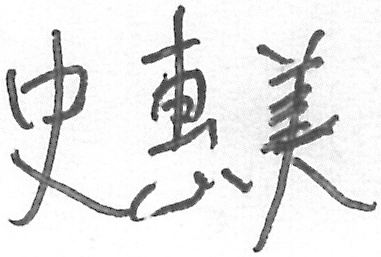 史惠美